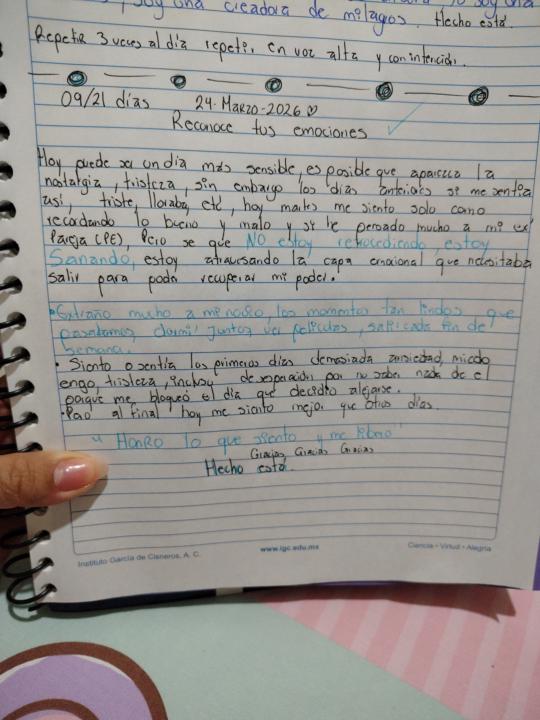 , soy una creadora de milagros. Hecho está.
Repetir 3 veces al día repetir en voz alta y con intención.
09/21 días 24-Marzo-2026
Reconoce tus emociones
Hoy puede ser un día más sensible, es posible que aparezca la
nostalgia, tristeza, sin embargo los días anteriores si me sentia
así, triste, lloraba, etc, hoy martes me siento solo como
recordando lo bueno y malo y si he pensado mucho a mi ex
Pareja (PE), Pero se que NO estoy retrocediendo, estoy
Sanando, estoy atravesando la capa emocional que necesitaba
salir para poder recuperar mi poder.
•Extraño mucho a mi novio, los momentos tan lindos que
pasabamos, dormir juntos, ver peliculas, salir cada fin de
semana.
• Siento o sentía los primeros días demasiada ansiedad, miedo
enojo, tristeza, incluso desesperación por no saber nada de el
porque me bloqueó el día que decidió alejarse.
•Pero al final hoy me siento mejor que otros días.
" Honro lo que siento y me libero"
Gracias, Gracias Gracias
Hecho está.
Instituto García de Cisneros, A. C. www.igc.edu.mx Ciencia • Virtud • Alegría